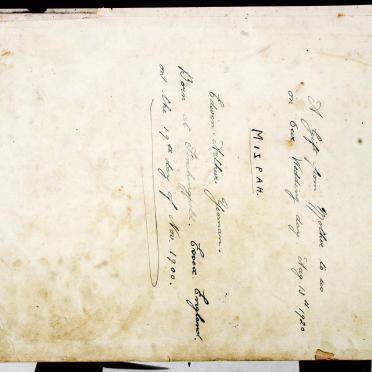 A Gift from Mother to us
on Our Wedding day Aug 13th 1920
MISPAH.
Edwin Arthur Yeoman.
Born at Essex England.
on the 19th day of Nov. 1900.